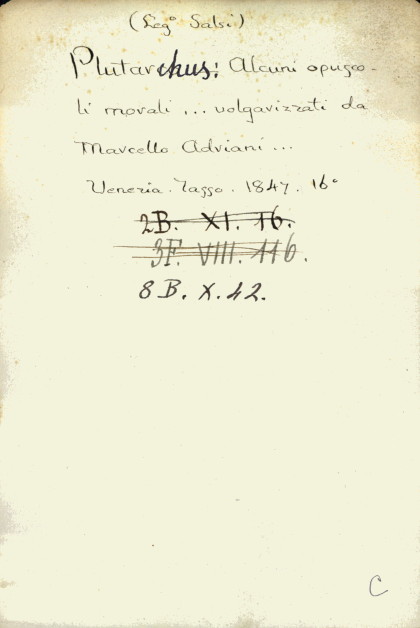 (Leg° Salsi)
Plutarchus: Alcuni opusco-
li morali ... volgarizzati da
Marcello Adriani ...
Venezia. Tasso. 1847. 16°
2B. XI. 16.
3F. VIII. 116.
8B. X. 42.
C